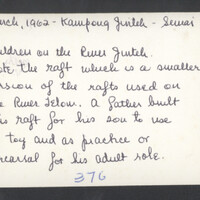 rch, 1962 - Kampong Jintch - Semai
ildren on the River Jintch.
te the raft which is a smaller
ersion of the rafts used on
e River Telom. A father built
is raft for his son to use
toy and as practice or
earsal for his adult role.
376